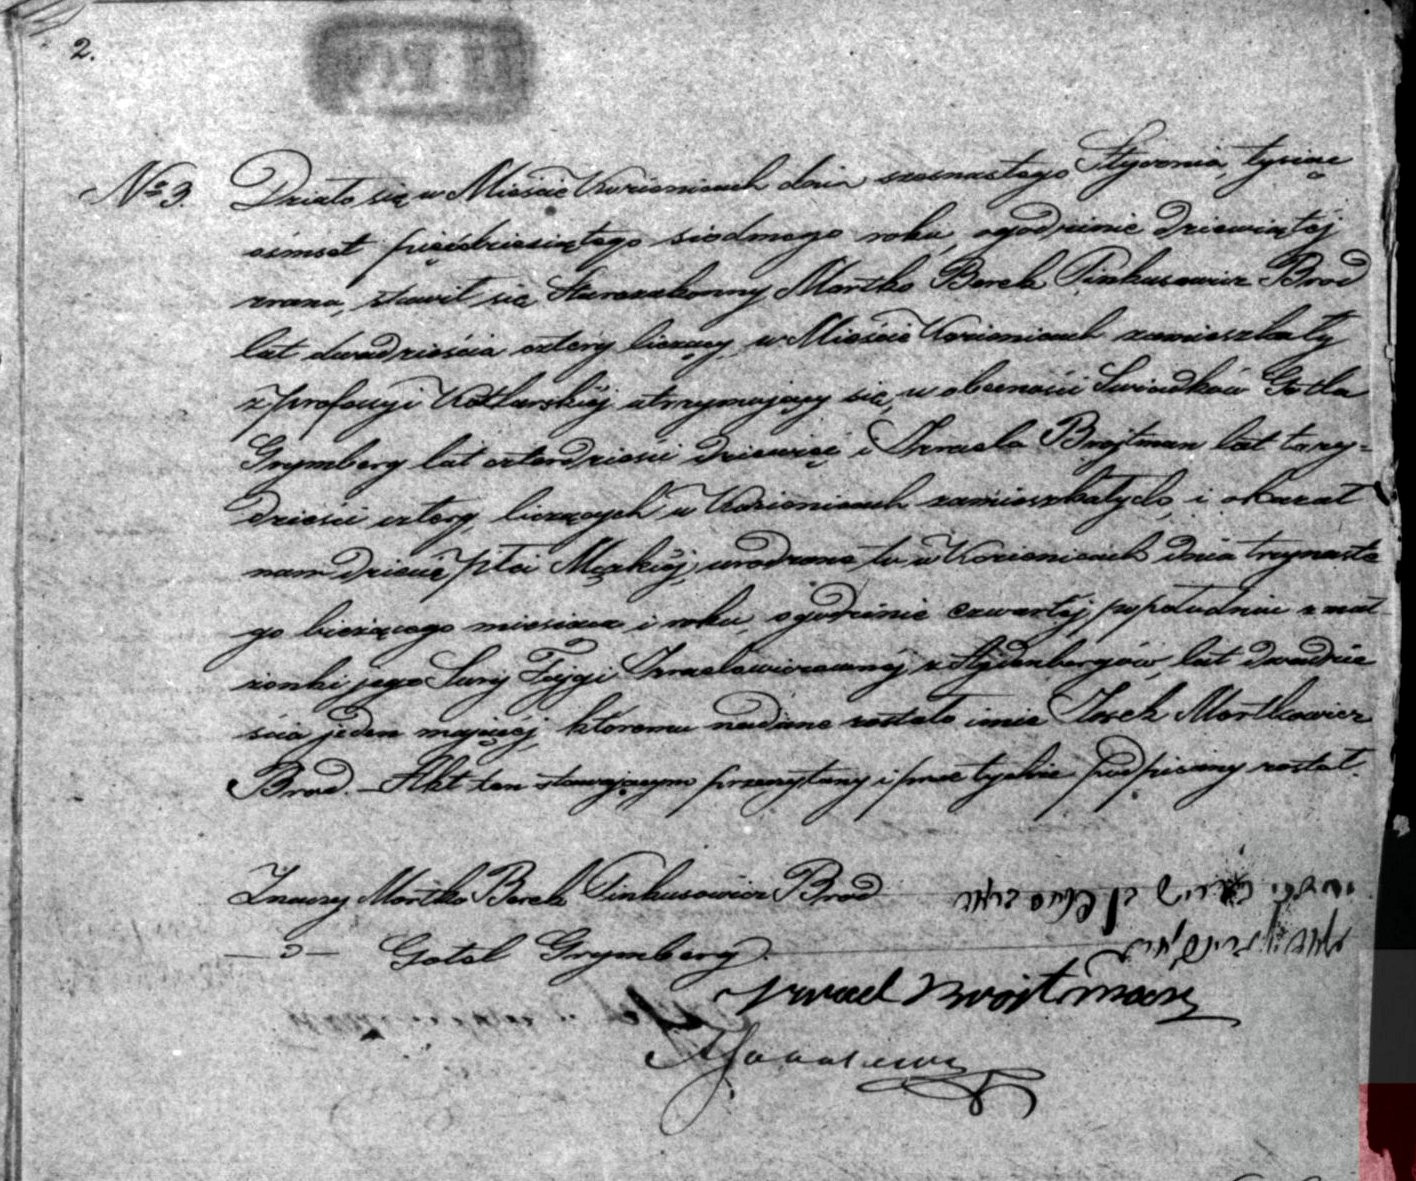 2.
No 3. Działo się w Mieście Kozienicach dnia szesnastego Stycznia, tysiąc
ośmset pięśdziesiątego siodmego roku, ogodzinie dziewiątéj
zrana, stawił się Starozakonny Mortko Berek Pinkusowicz Brod
lat dwadzieścia cztery liczący, w Mieście Kozienicach zamieszkały
z professyi Kotlarskiéj utrzymujący się, w obecności Swiadków Gotla
Grymberg lat czterdzieści dziewięć i Izraela Brojtman lat trzy-
dzieści cztery, liczących w Kozienicach zamieszkałych, i okazał
nam dziecię płci Męzkiéj, urodzone tu w Kozienicach dnia trzynaste
go bieżącego miesiaca i roku, ogodzinie czwartéj popołudniu z mał
żonki jego Sury Fajgi Izraelowiczownéj z Sztejdenbergów, lat dwadzie
ścia jeden mającéj, któremu nadane zostało imie Josek Mortkowicz
Brod. — Akt ten stawającym przeczytany i przez tychże podpisany został.
Znaczy Mortko Berek Pinkusowicz Brod מרדכי בעריש בן פנחס בראד
— d — Gotel Grymberg
Izrael Brojtman